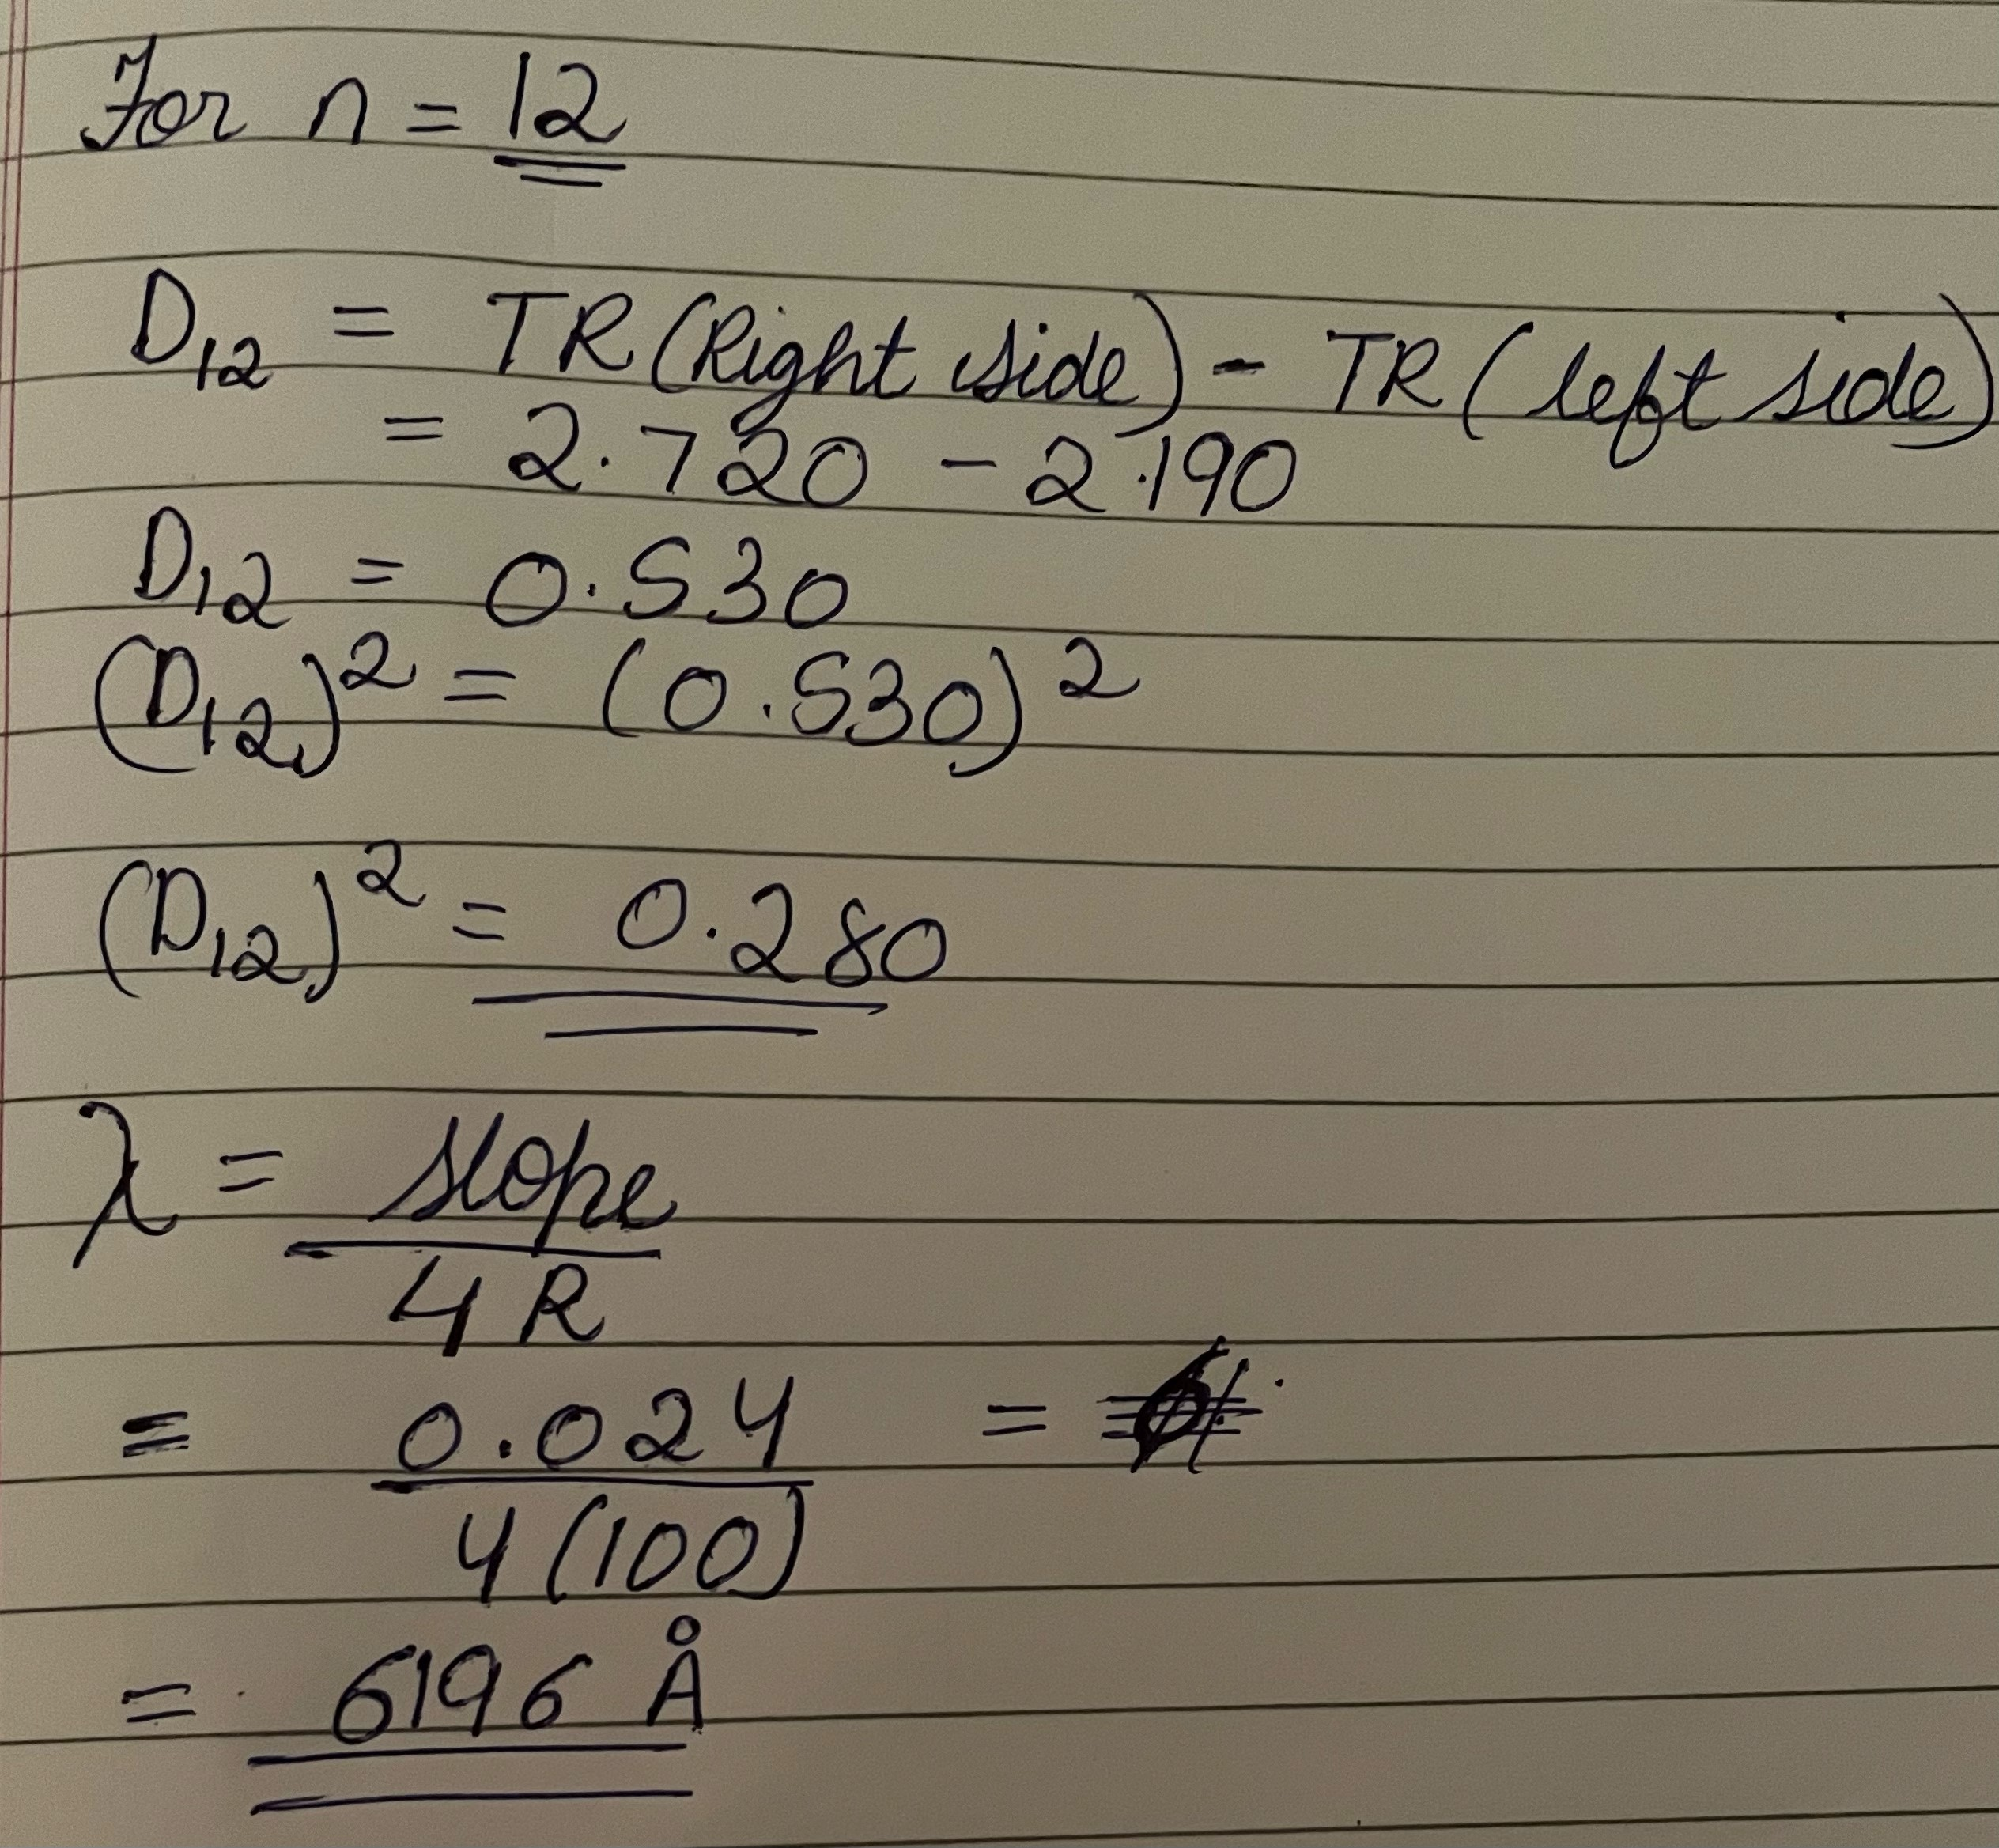 For n = 12
D12 = TR (Right side) - TR (left side)
= 2.720 - 2.190
D12 = 0.530
(D12)² = (0.530)²
(D12)² = 0.280
λ = slope
4 R
= 0.024 =
4 (100)
= 6196 Å